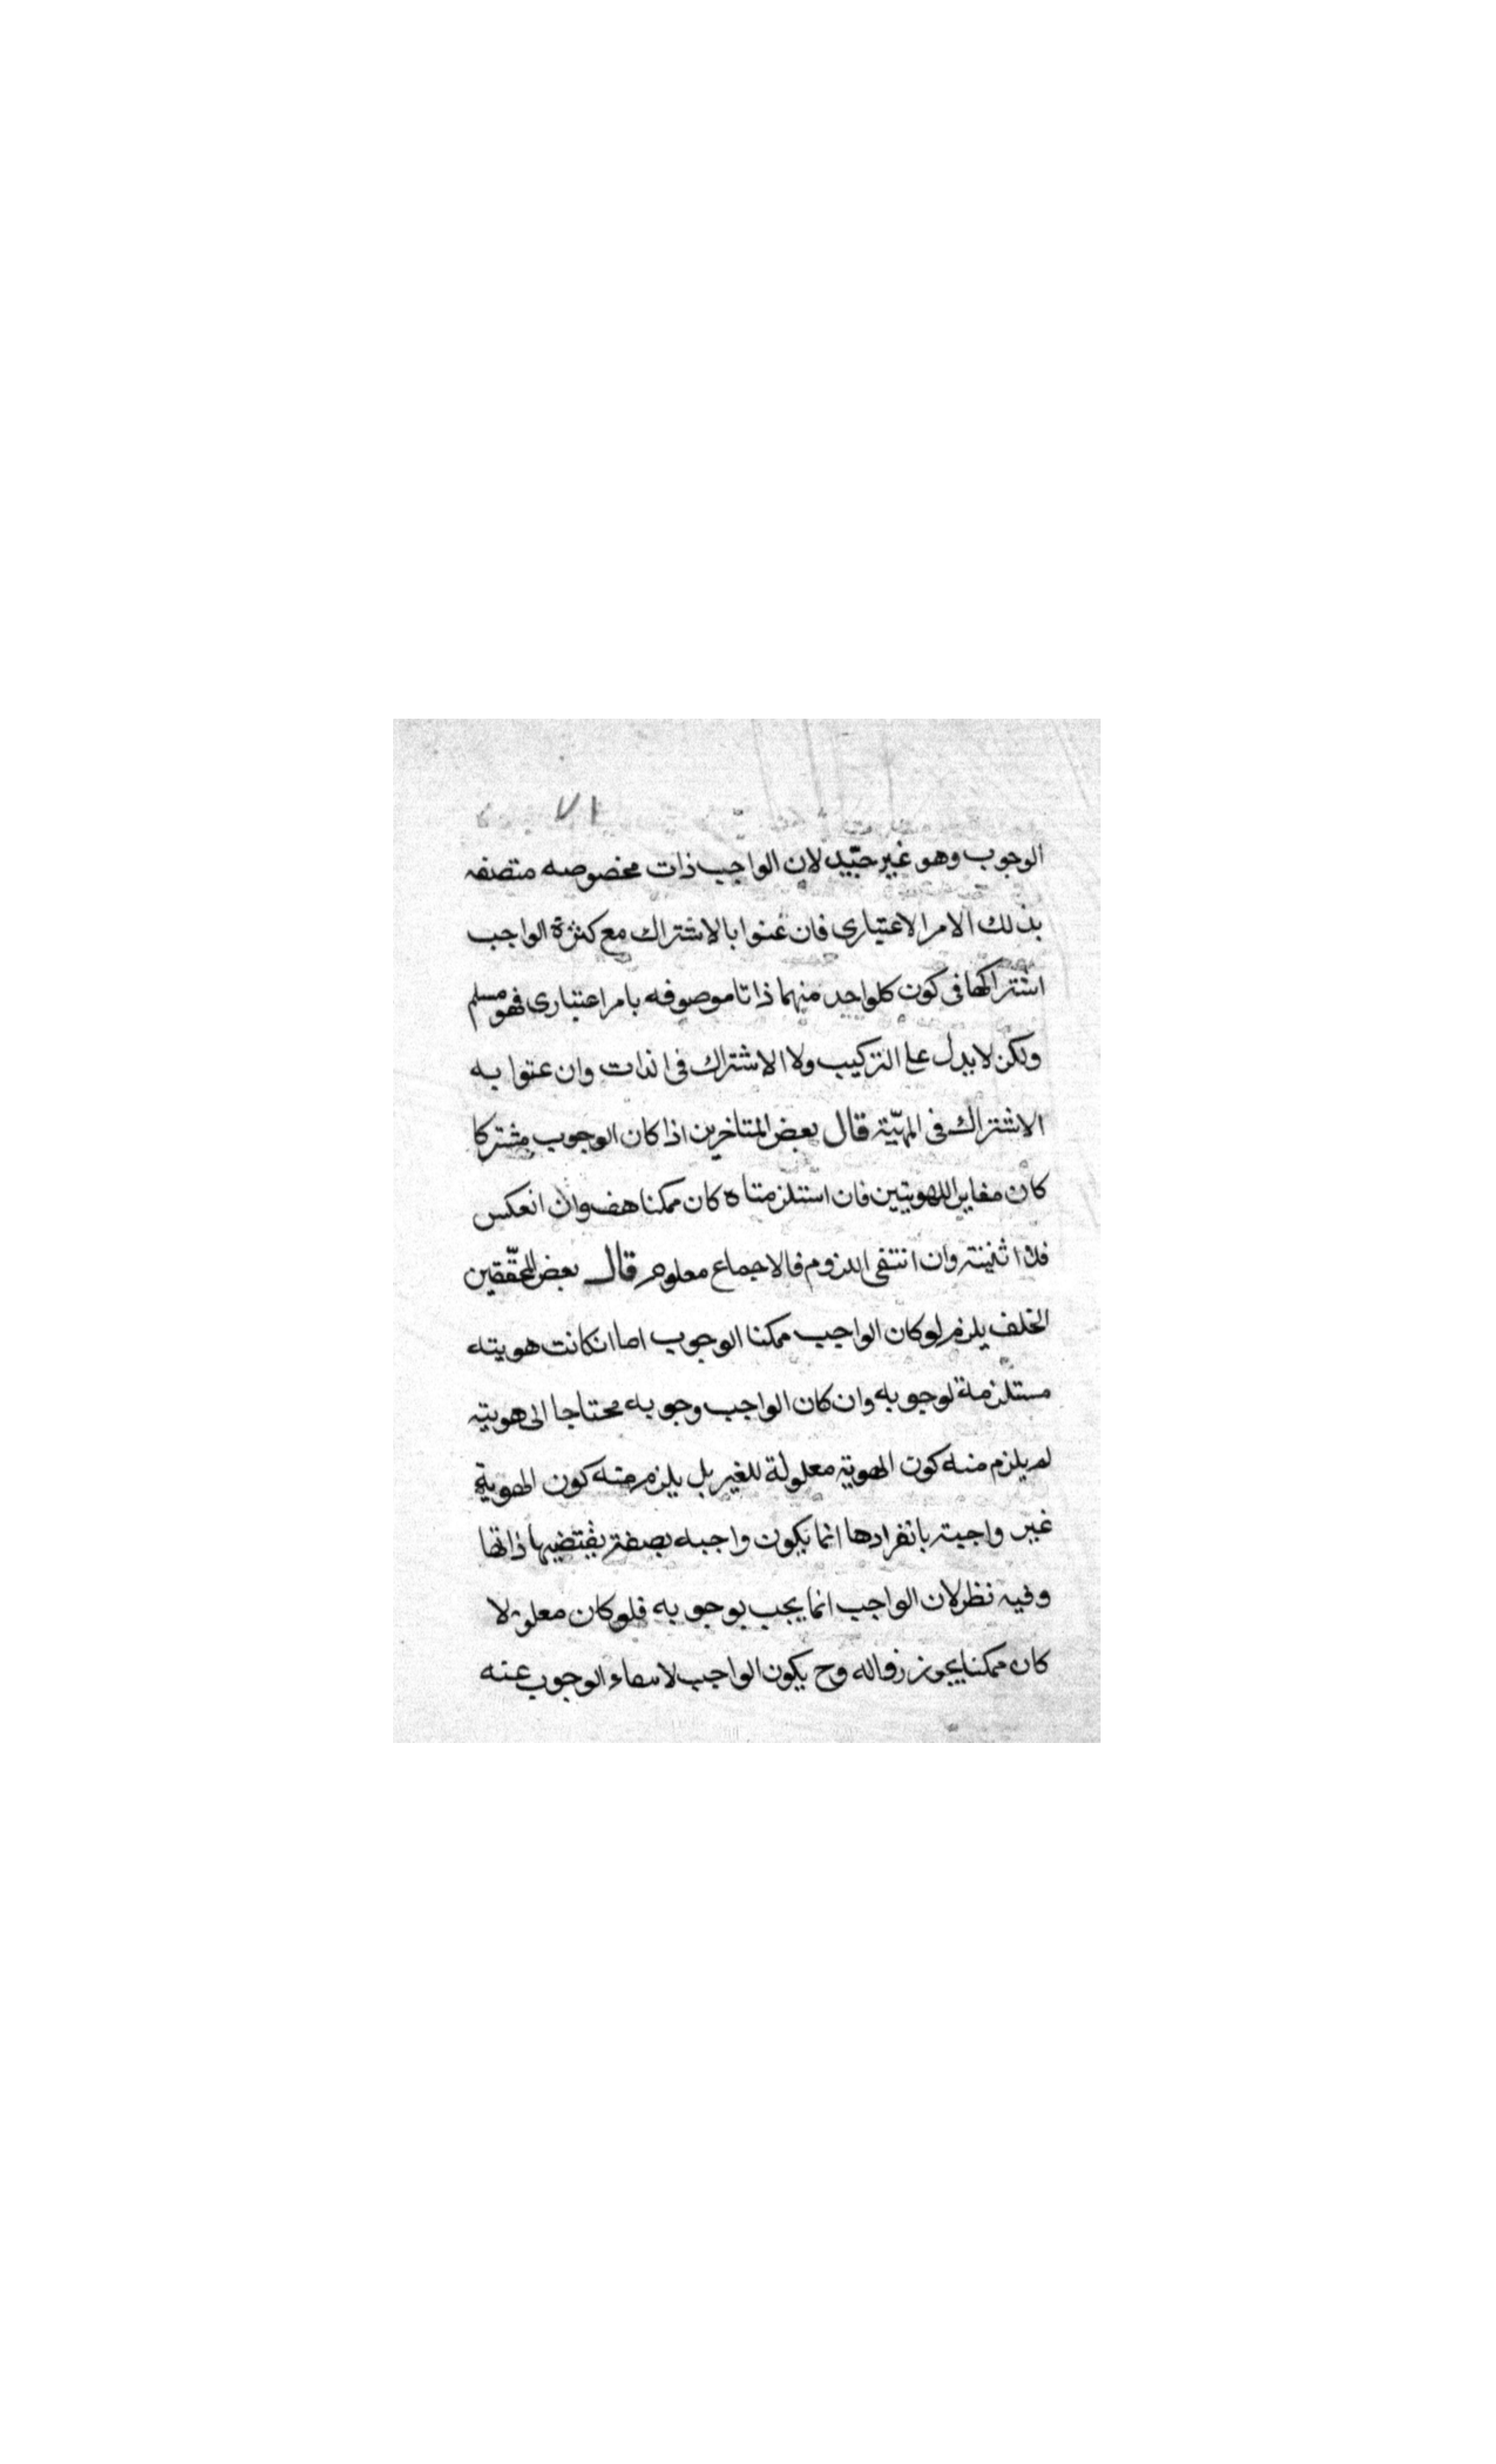 ٧١
الوجوب وهو غير جيّد لان الواجب ذات مخصوصه متصفه
بذلك الامر الاعتباري فان عنوا بالاشتراك مع كثرة الواجب
اشتراكهما في كون كلواحد منهما ذاتا موصوفه بامر اعتباري فهو مسلم
ولكن لا يدل على التركيب ولا الاشتراك في الذات وان عنوا به
الاشتراك في المهيّة قال بعض المتاخرين اذا كان الوجوب مشتركا
كان مغايرا للهويتين فان استلزمتاه كان ممكنا هف وان انعكس
فلا اثنينة وان انتفى اللزوم فالاجماع معلوم قال بعض المحقّقين
الخلف يلزم لو كان الواجب ممكنا الوجوب اما انكانت هويته
مستلزمة لوجوبه وان كان الواجب وجوبه محتاجا الى هويته
لم يلزم منه كون الهوية معلولة للغير بل يلزم منه كون الهوية
غير واجبة بانفرادها انما يكون واجبه بصفة يقتضيها ذاتها
وفيه نظر لان الواجب انما يجب بوجوبه فلو كان معلولا
كان ممكنا يجوز زواله وح يكون الواجب لانتفاء الوجوب عنه